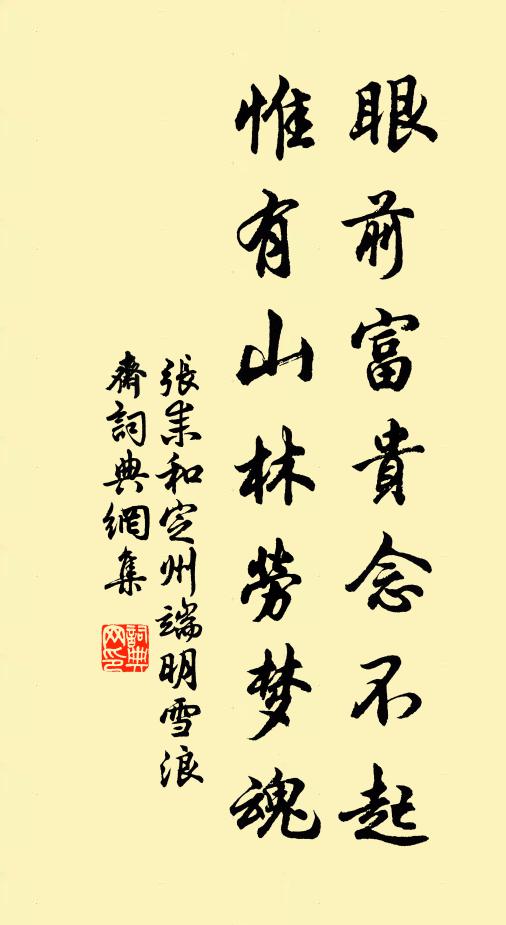 眼前富貴念不起
惟有山林勞梦魂
張耒和定州端明雪浪
齋詞典網集
詞典網印